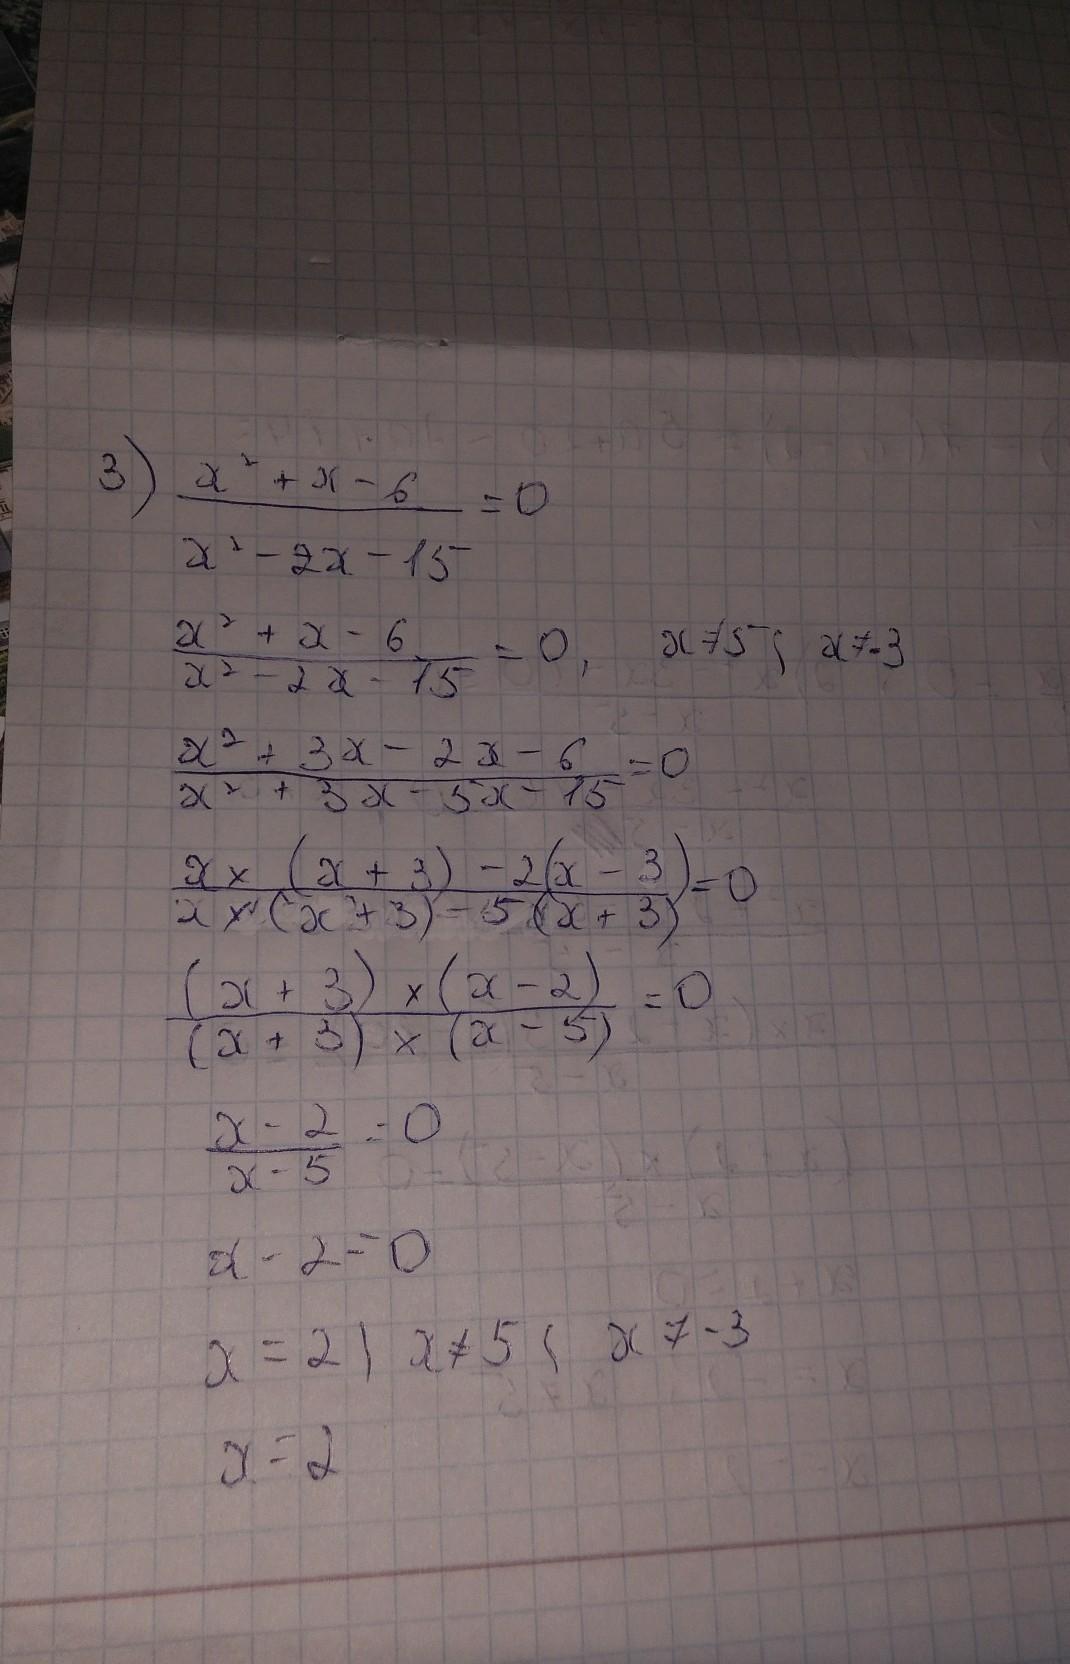 3) x² + x - 6 / x² - 2x - 15 = 0
x² + x - 6 / x² - 2x - 15 = 0, x≠5; x≠-3
x² + 3x - 2x - 6 / x² + 3x - 5x - 15 = 0
x × (x + 3) - 2(x - 3) / x × (x + 3) - 5(x + 3) = 0
(x + 3) × (x - 2) / (x + 3) × (x - 5) = 0
x - 2 / x - 5 = 0
x - 2 = 0
x = 2, x≠5; x≠-3
x = 2